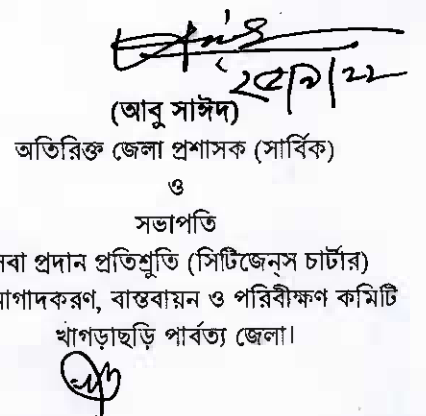 ২৫/৯/২২
(আবু সাঈদ)
অতিরিক্ত জেলা প্রশাসক (সার্বিক)
ও
সভাপতি
বা প্রদান প্রতিশ্রুতি (সিটিজেন্‌স চার্টার)
াগাদকরণ, বাস্তবায়ন ও পরিবীক্ষণ কমিটি
খাগড়াছড়ি পার্বত্য জেলা।